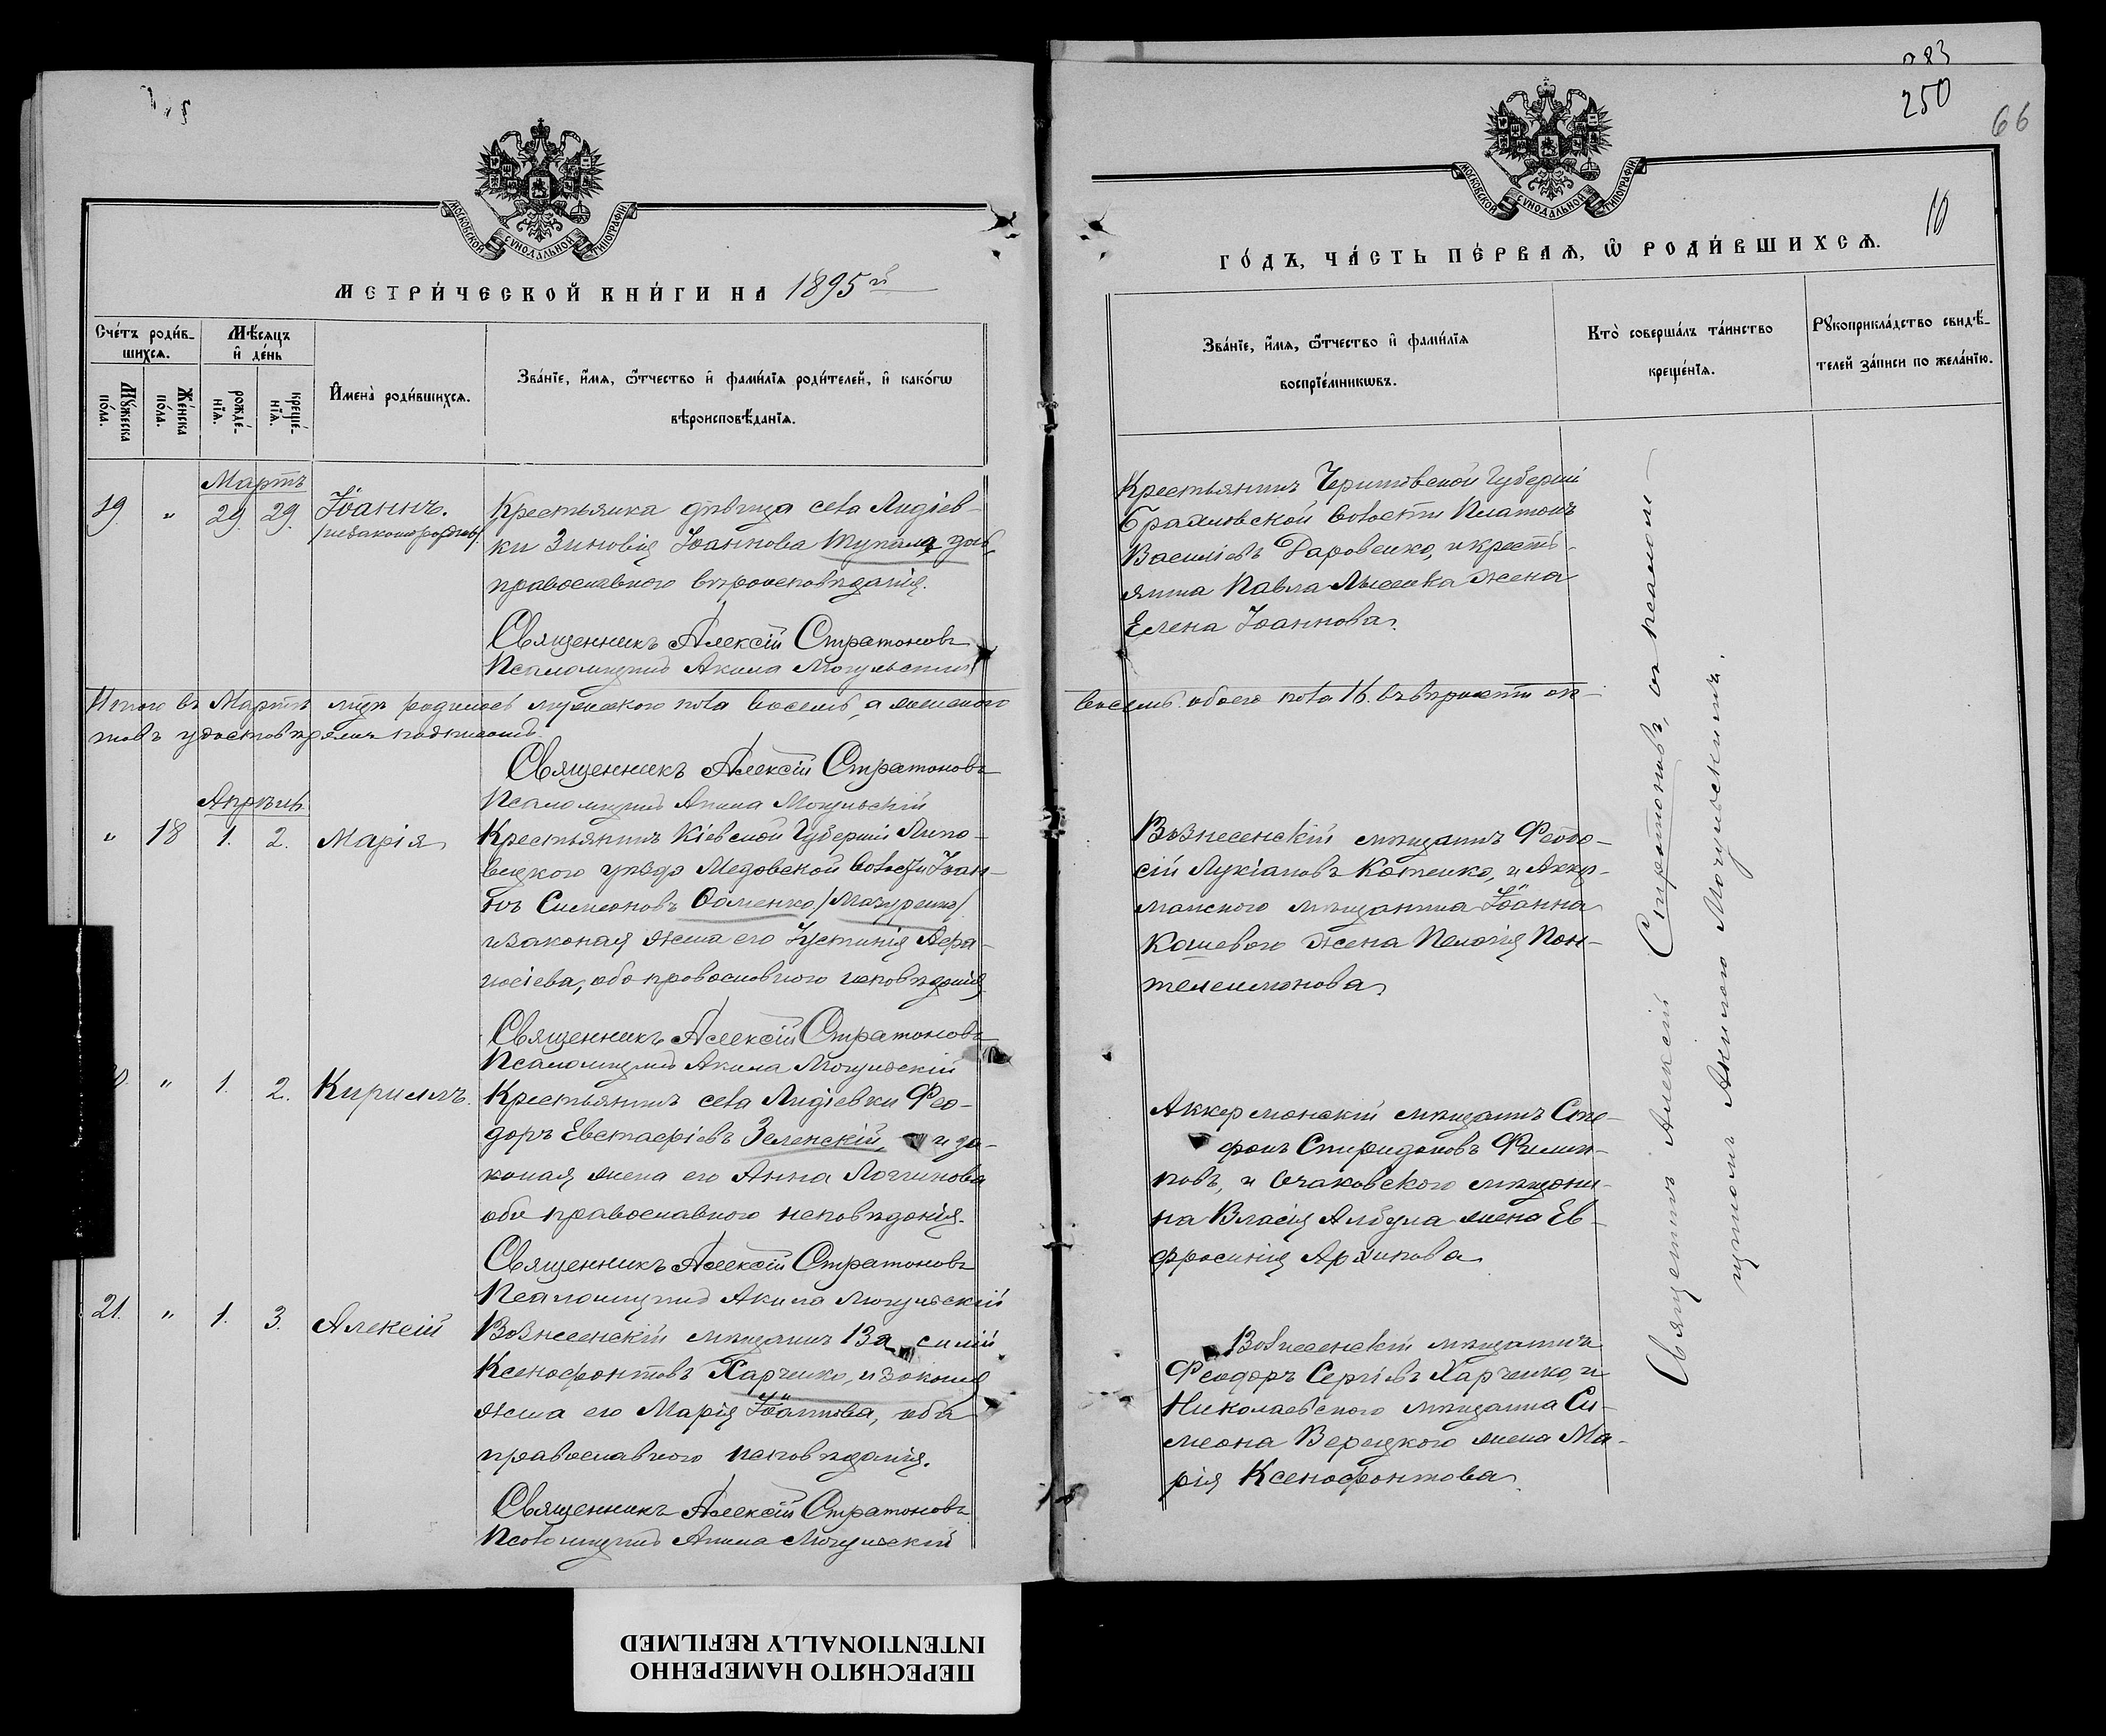 283
250
66
10
МОСКОВСКОЙ СѴНОДАЛЬНОЙ ТИПОГРАФІИ
МЕТРИ́ЧЕСКОЙ КНИ́ГИ НА 1895й
Сче́тъ роди́в-
шихсѧ.
Мѣ́сѧцъ
и҆ де́нь
Мꙋ́жеска по́ла.
Же́нска по́ла.
рожде́-нїѧ.
креще́-нїѧ.
И҆мена̀ роди́вшихсѧ.
Зва́нїе, и҆́мѧ, ѻ҆́тчество и҆ фами́лїѧ роди́телей, и҆ како́гѡ
вѣроисповѣ́данїѧ.
Мартъ
19. " 29. 29. Іоаннъ.
/незаконнорожден/
Крестьянка дѣвица села Лидіев-
ки Зиновія Іоаннова
православнаго вѣроисповѣданія.
Священникъ Алексій Стратоновъ
Псаломщикъ Акила Могульскій
Итого въ Мартѣ родилось мужескаго пола восемь, а женскаго
товъ удостовѣряемъ подписомъ.
Священникъ Алексій Стратоновъ
Псаломщикъ Акила Могульскій
Апрѣль
" 18 1. 2. Марія
Крестьянинъ Кіевской Губерніи Липо-
вецкого уѣзда Медовской Волости Іоан-
нъ Симеоновъ /Мазуренко/
и законая жена его Іустинія Аѳа-
насіева, оба православного исповѣданія
Священникъ Алексій Стратоновъ
Псаломщикъ Акила Могульскій
" 1. 2. Кириллъ.
Крестьянинъ села Лидіевки Ѳео-
доръ Евстаѳіевъ Зеленскій, и за-
коная жена его Анна Логгинова
оба православного исповѣданія.
Священникъ Алексій Стратоновъ
Псаломщикъ Акила Могульскій
21. " 1. 3. Алексій
Вознесенскій мѣщанинъ Ва силій
Ксенофонтовъ Харченко, и законая
жена его Марія Іоаннова, оба
православного исповѣданія.
Священникъ Алексій Стратоновъ
Псаломщикъ Акила Могульскій
МОСКОВСКОЙ СѴНОДАЛЬНОЙ ТИПОГРАФІИ
ГО́ДЪ, ЧА́СТЬ ПЕ́РВАѦ, Ѽ РОДИ́ВШИХСѦ.
Зва́нїе, и҆́мѧ, ѻ҆́тчество и҆ фами́лїѧ
воспрїе́мникѡвъ.
Кто̀ соверша́лъ та́инство
креще́нїѧ.
Рꙋкоприкла́дство свидѣ́-
телей за́писи по жела́нїю.
Крестьянинъ Черниговской Губерніи
Волости Платонъ
Василіевъ Даровенко, и кресть-
янина Павла жена
Елена Іоаннова.
восемь обоего пола 16. въ вѣрности ак-
Вознесенскій мѣщанинъ Ѳеодо-
сій Лукіановъ Котенко, и Аккер-
манского мѣщанина Іоанна
Кошевого жена Пелагія Пан-
телеимонова.
Аккерманскій мѣщанинъ Сте-
фанъ Спиридоновъ Филип-
повъ, и Очаковского мѣщани-
на Власія жена Ев-
фросинія Архипова
Вознесенскій мѣщанинъ
Ѳеодоръ Сергіевъ Харченко, и
Николаевского мѣщанина Си-
меона Верецкого жена Ма-
рія Ксенофонтова.
Священникъ Алексій Стратоновъ, съ псаломщ-
щикомъ Акилою Могульскимъ.
ПЕРЕСНЯТО НАМЕРЕННО
INTENTIONALLY REFILMED